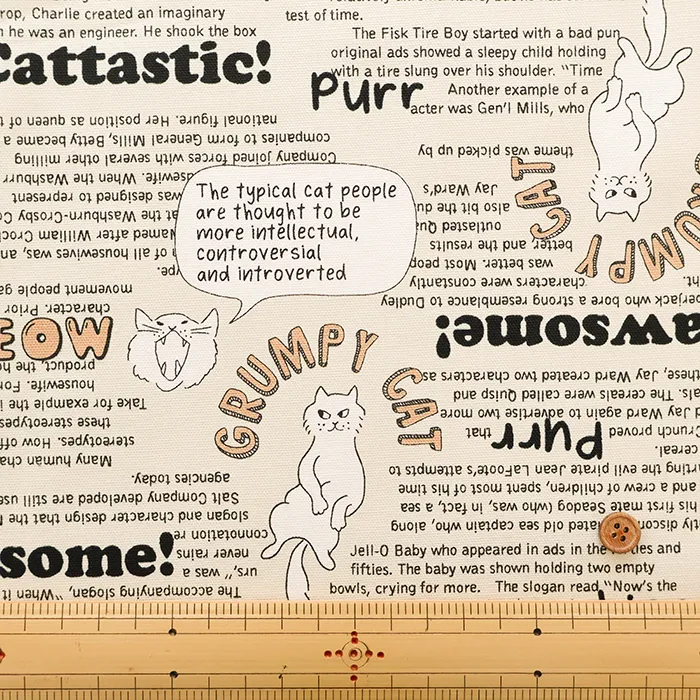 rop, Charlie created an imaginary
he was an engineer. He shook the box
Cattastic!
test of time.
The Fisk Tire Boy started with a bad pun
original ads showed a sleepy child holding
with a tire slung over his shoulder. "Time
Another example of a
acter was Gen'l Mills, who
Purr
national figure. Her position as queen of
companies to form General Mills, Betty became a
Company joined forces with several other milling
housewife. When the Washburn
was designed to represent
at the Washburn-Crosby
Named after William
of all housewives, was, an
The typical cat people
are thought to be
more intellectual,
controversial
and introverted
theme was picked up by
Jay Ward's
also bit the
outlasted
better, and the results
was better. Most
characters were constantly
who bore a strong resemblance to Dudley
GRUMPY CAT
movement people
character. Prior
MEOW
product, the
housewife. For
Take for example the
these stereotypes
stereotypes. How
Many human
GRUMPY CAT
awsome!
these, Jay Ward created two characters as
The cereals were called Quisp and
Jay Ward again to advertise two more
Crunch proved
that
Purr
cereal.
the evil pirate Jean LaFoote's attempts to
and a crew of children, spent most of his time
his first mate Seadog (who was, in fact, a sea
old sea captain who, along
agencies today.
Salt Company developed are still
slogan and character design that the
connotation
never rains
was a
The accompanying slogan, "When it
some!
Jell-O Baby who appeared in ads in the
fifties. The baby was shown holding two empty
bowls, crying for more. The slogan read, "Now's the